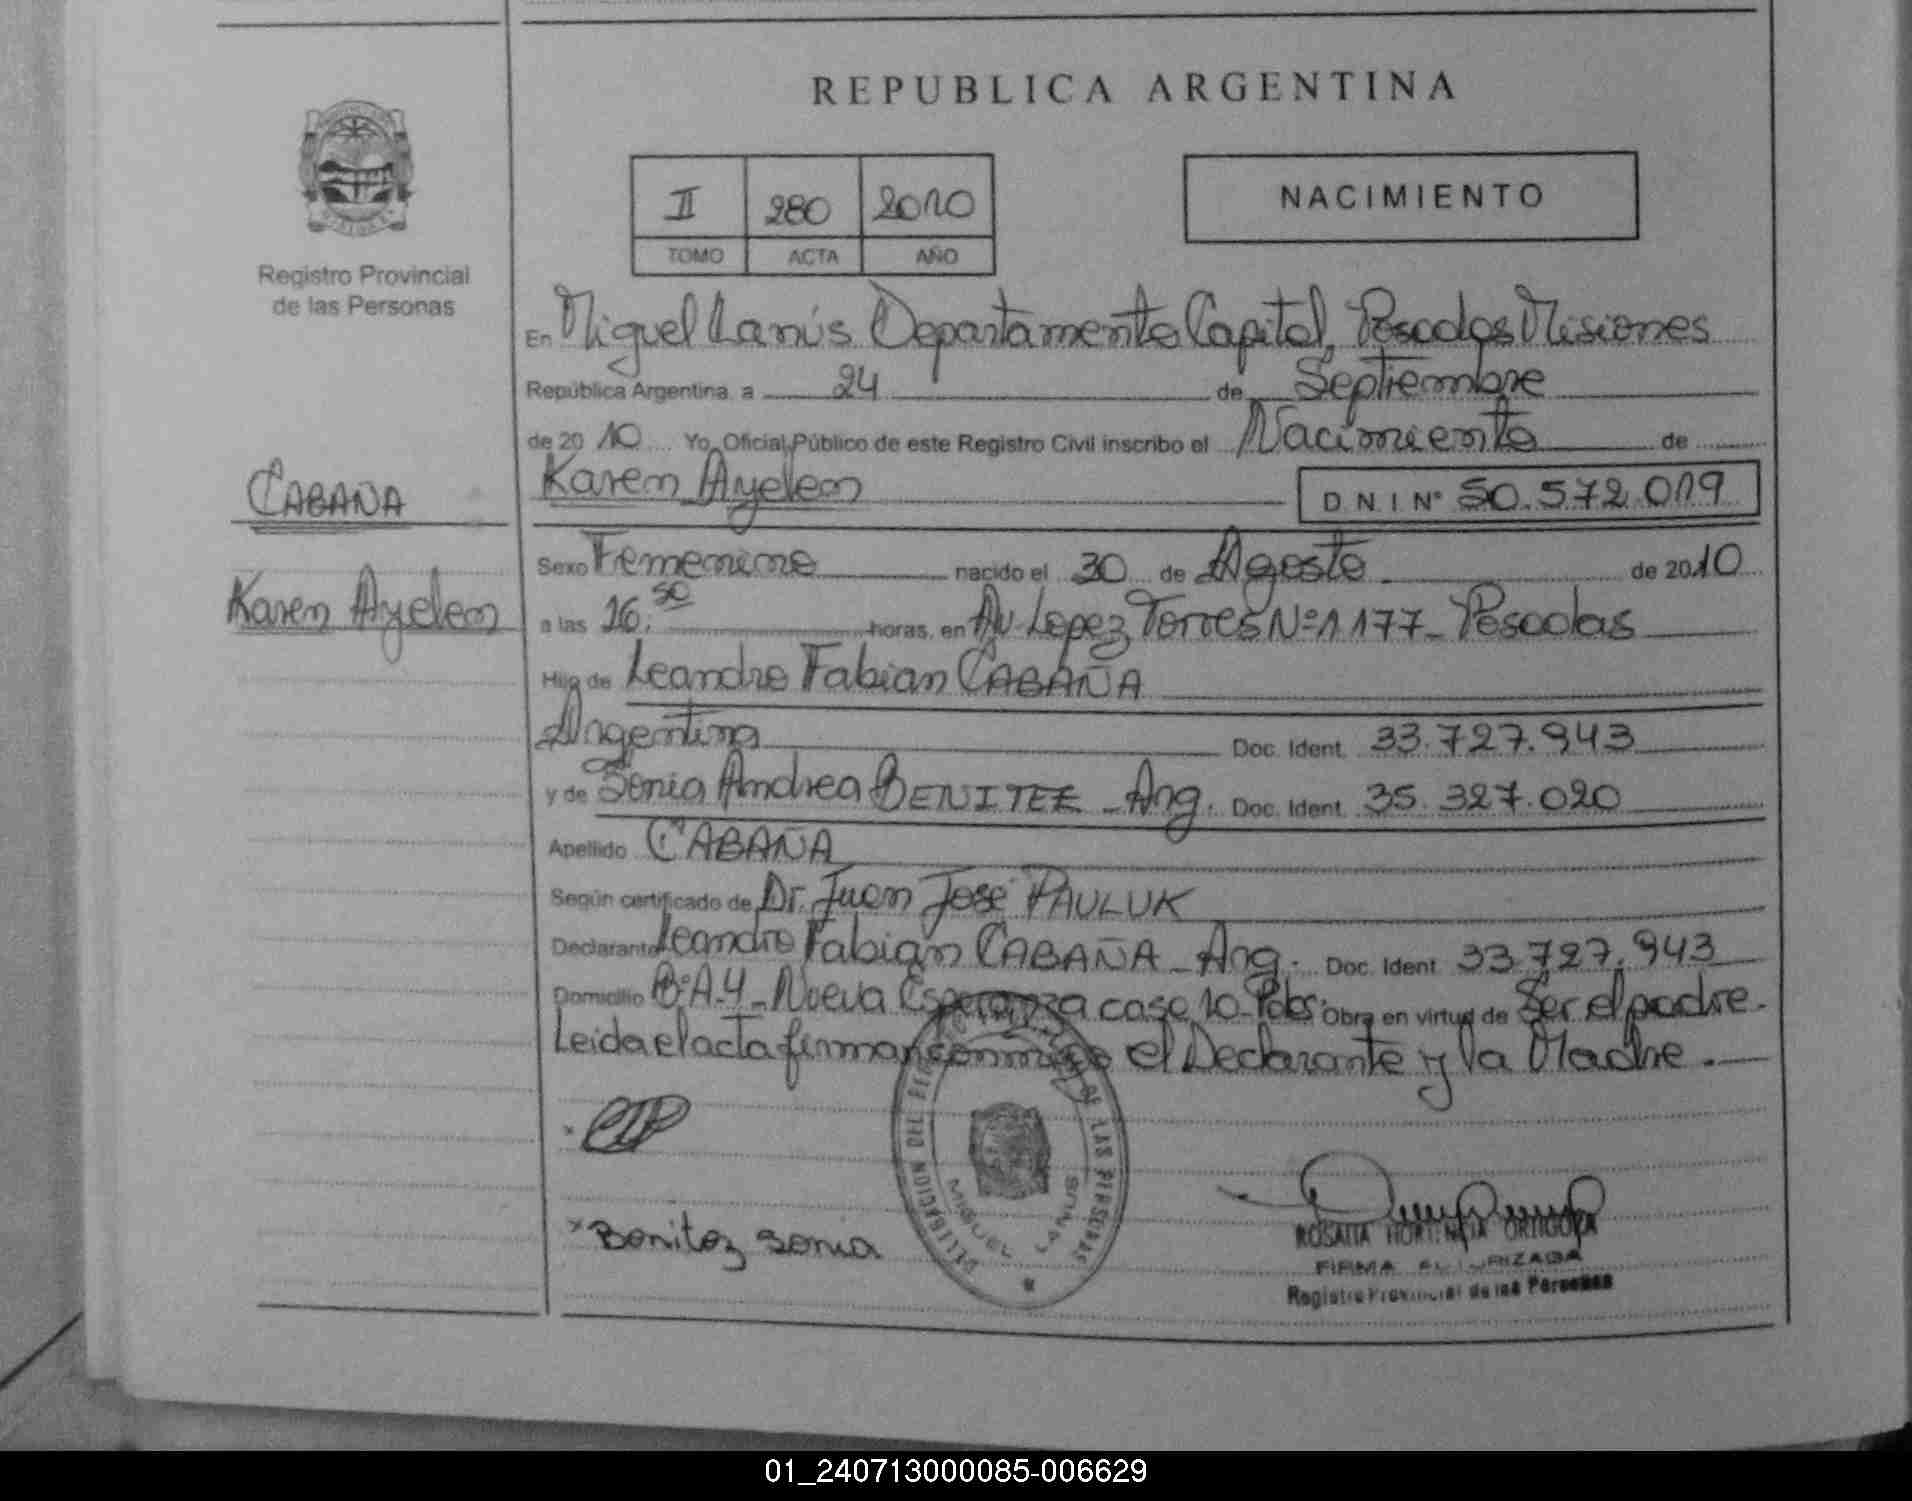 REPUBLICA ARGENTINA
II 280 2010
TOMO ACTA AÑO
NACIMIENTO
Registro Provincial
de las Personas
CABAÑA
Karen Ayelen
En Miguel Lanús Departamento Capital, Posadas Misiones
República Argentina, a 24 de Septiembre
de 2010 Yo, Oficial Público de este Registro Civil inscribo el Nacimiento de
Karen Ayelen D N I Nº 50.572.019
Sexo Femenino nacido el 30 de Agosto de 2010
a las 16:50 horas, en Av. Lopez Torres Nº 1177 - Posadas
Hijo de Leandro Fabian CABAÑA
Argentina Doc. Ident. 33.727.943
y de Sonia Andrea BENITEZ - Arg. Doc. Ident. 35.327.020
Apellido CABAÑA
Según certificado de Dr. Juan José PAULUK
Declarante Leandro Fabian CABAÑA - Arg. Doc. Ident. 33.727.943
Domicilio BºA-4 - Nueva Esperanza casa 10 - Pdas. Obra en virtud de Ser el padre.
Leida el acta firman conmigo el Declarante y la Madre.
x
x Benitez Sonia
DELEGACION DEL REGISTRO DE LAS PERSONAS
MIGUEL LANUS
ROSALIA HORTENCIA ORTIGOZA
FIRMA AUTORIZADA
Registro Provincial de las Personas
01_240713000085-006629